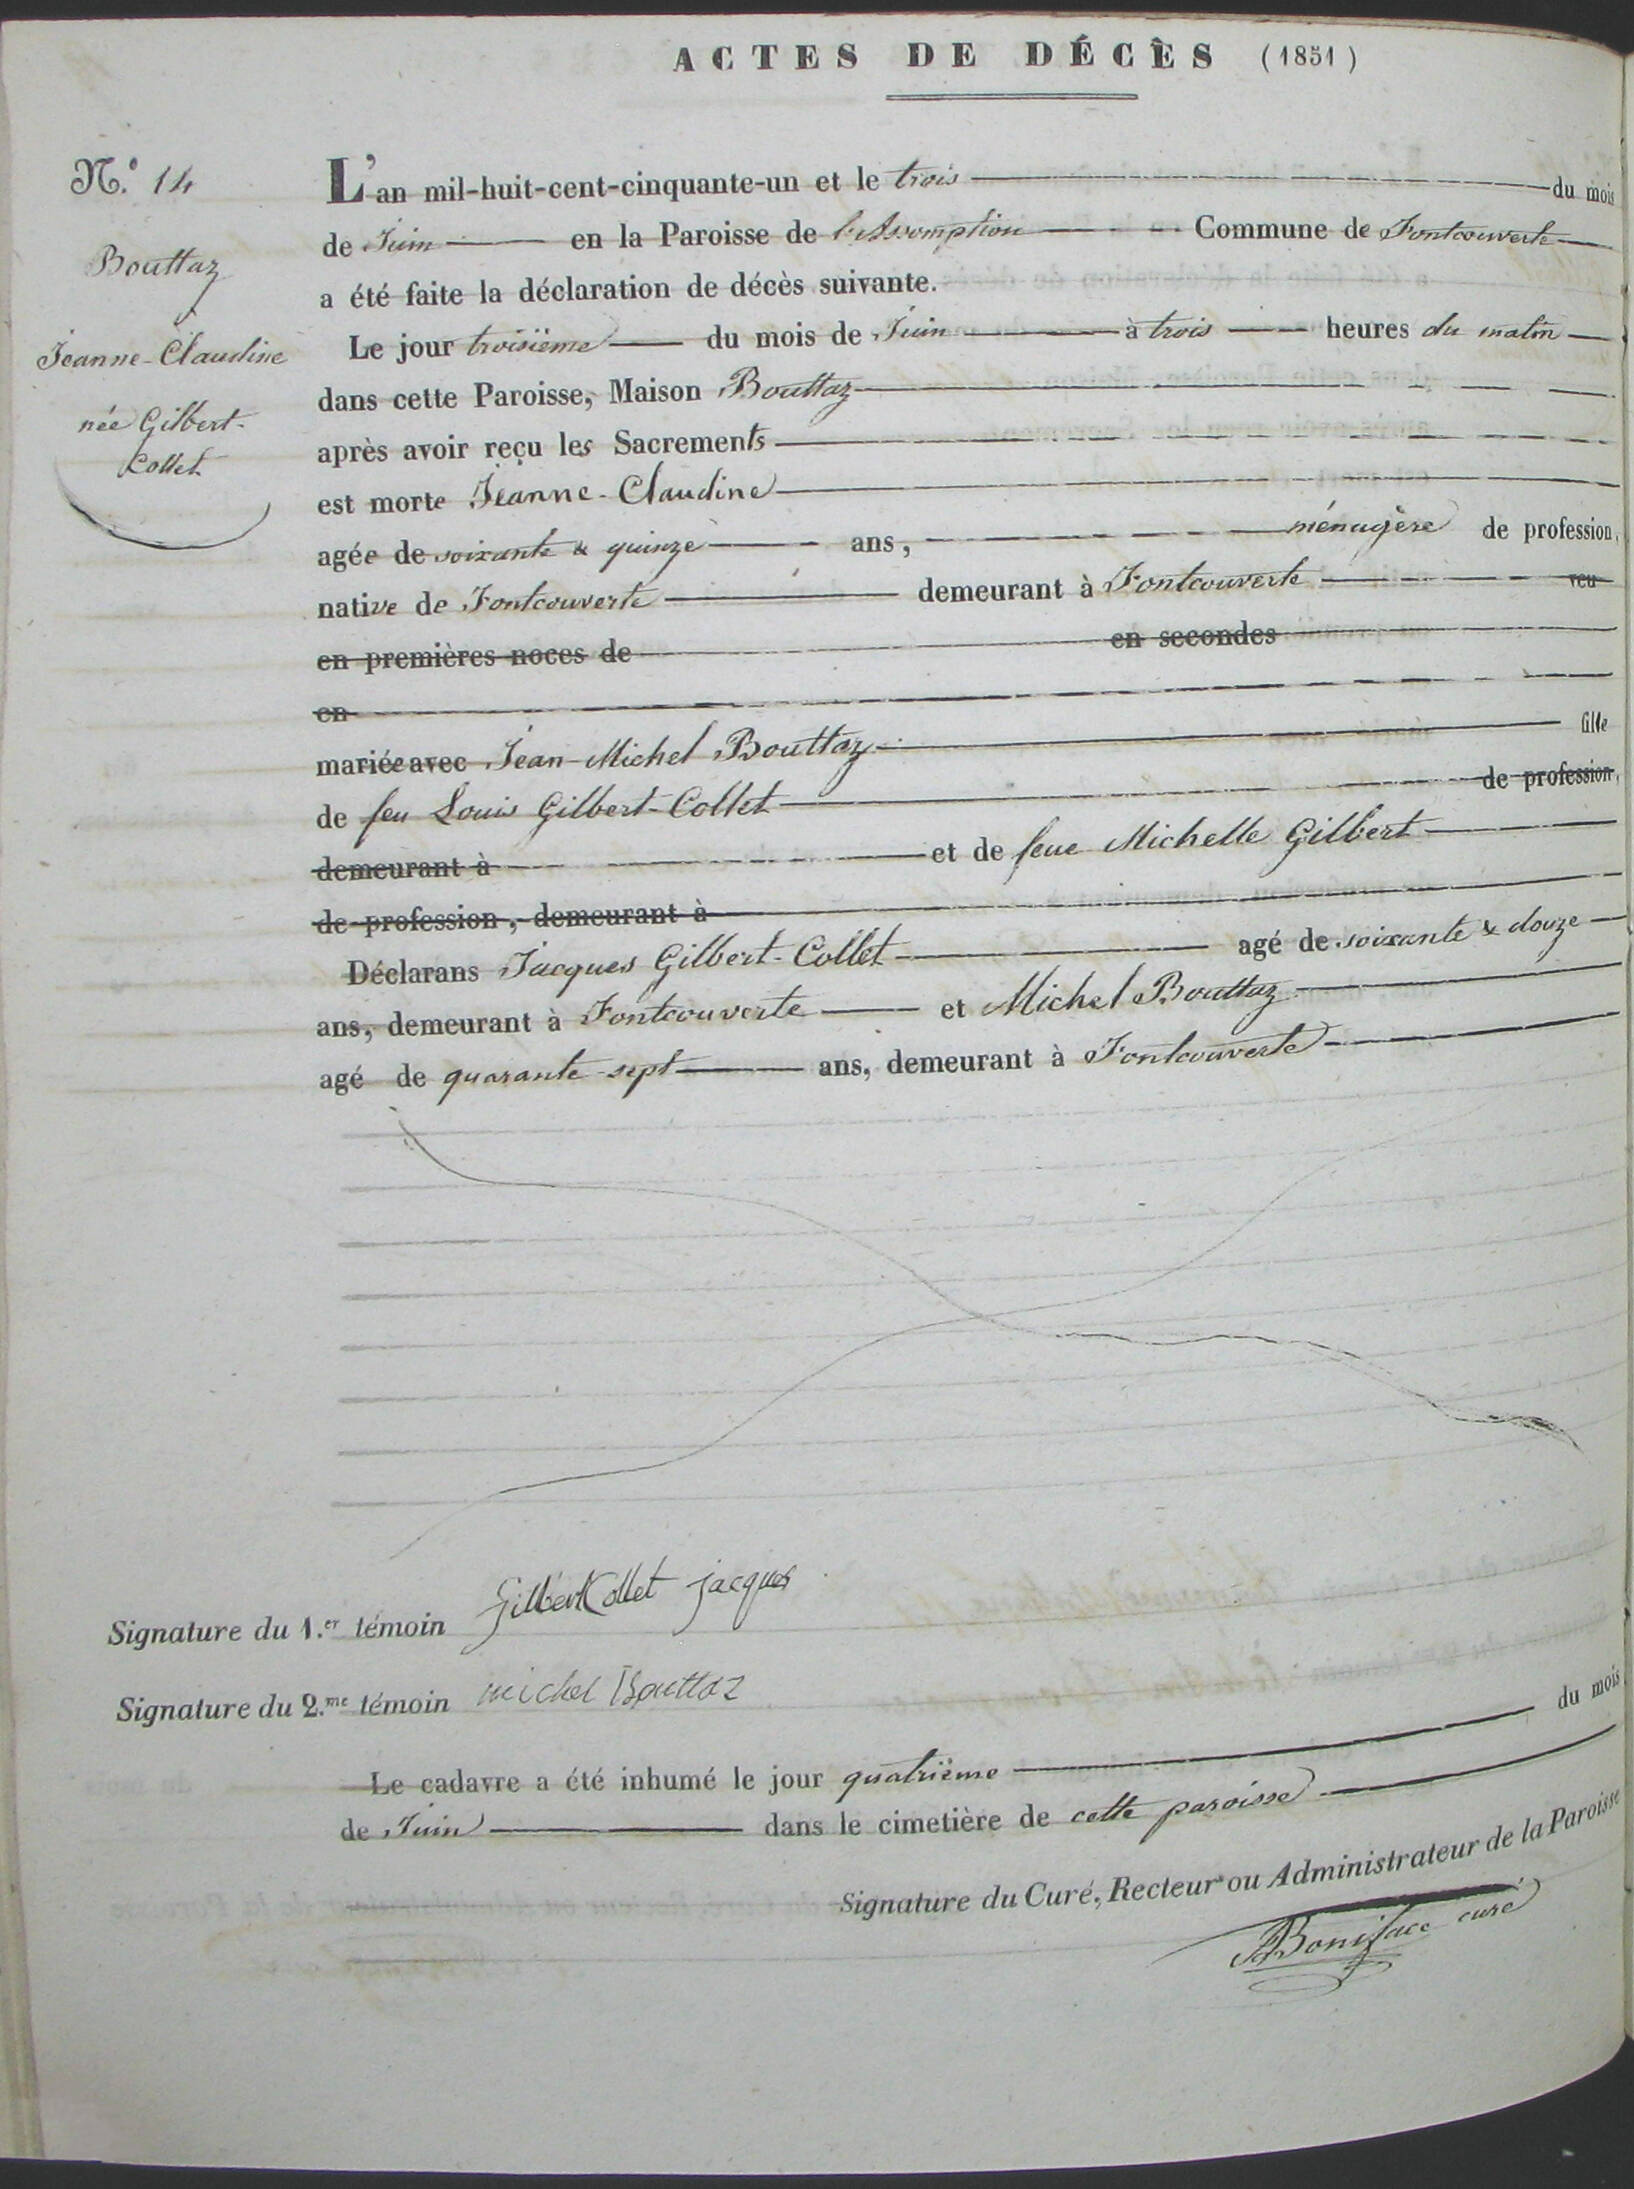 ACTES DE DÉCÈS (1851)
N.º 14
Bouttaz
Jeanne-Claudine
née Gilbert-
Collet
L'an mil-huit-cent-cinquante-un et le trois du mois
de Juin en la Paroisse de l'Assomption Commune de Fontcouverte
a été faite la déclaration de décès suivante.
Le jour troisième du mois de Juin à trois heures du matin
dans cette Paroisse, Maison Bouttaz
après avoir reçu les Sacrements
est morte Jeanne-Claudine
agée de soixante & quinze ans, ménagère de profession,
native de Fontcouverte demeurant à Fontcouverte veu
en premières noces de en secondes
en
mariée avec Jean-Michel Bouttaz fille
de feu Louis Gilbert-Collet de profession,
demeurant à et de feue Michelle Gilbert
de profession, demeurant à
Déclarans Jacques Gilbert-Collet agé de soixante & douze
ans, demeurant à Fontcouverte et Michel Bouttaz
agé de quarante-sept ans, demeurant à Fontcouverte
Signature du 1.er témoin Gilbert Collet jacques
Signature du 2.me témoin michel Bouttaz
Le cadavre a été inhumé le jour quatrième du mois
de Juin dans le cimetière de cette paroisse
Signature du Curé, Recteur ou Administrateur de la Paroisse
Boniface curé